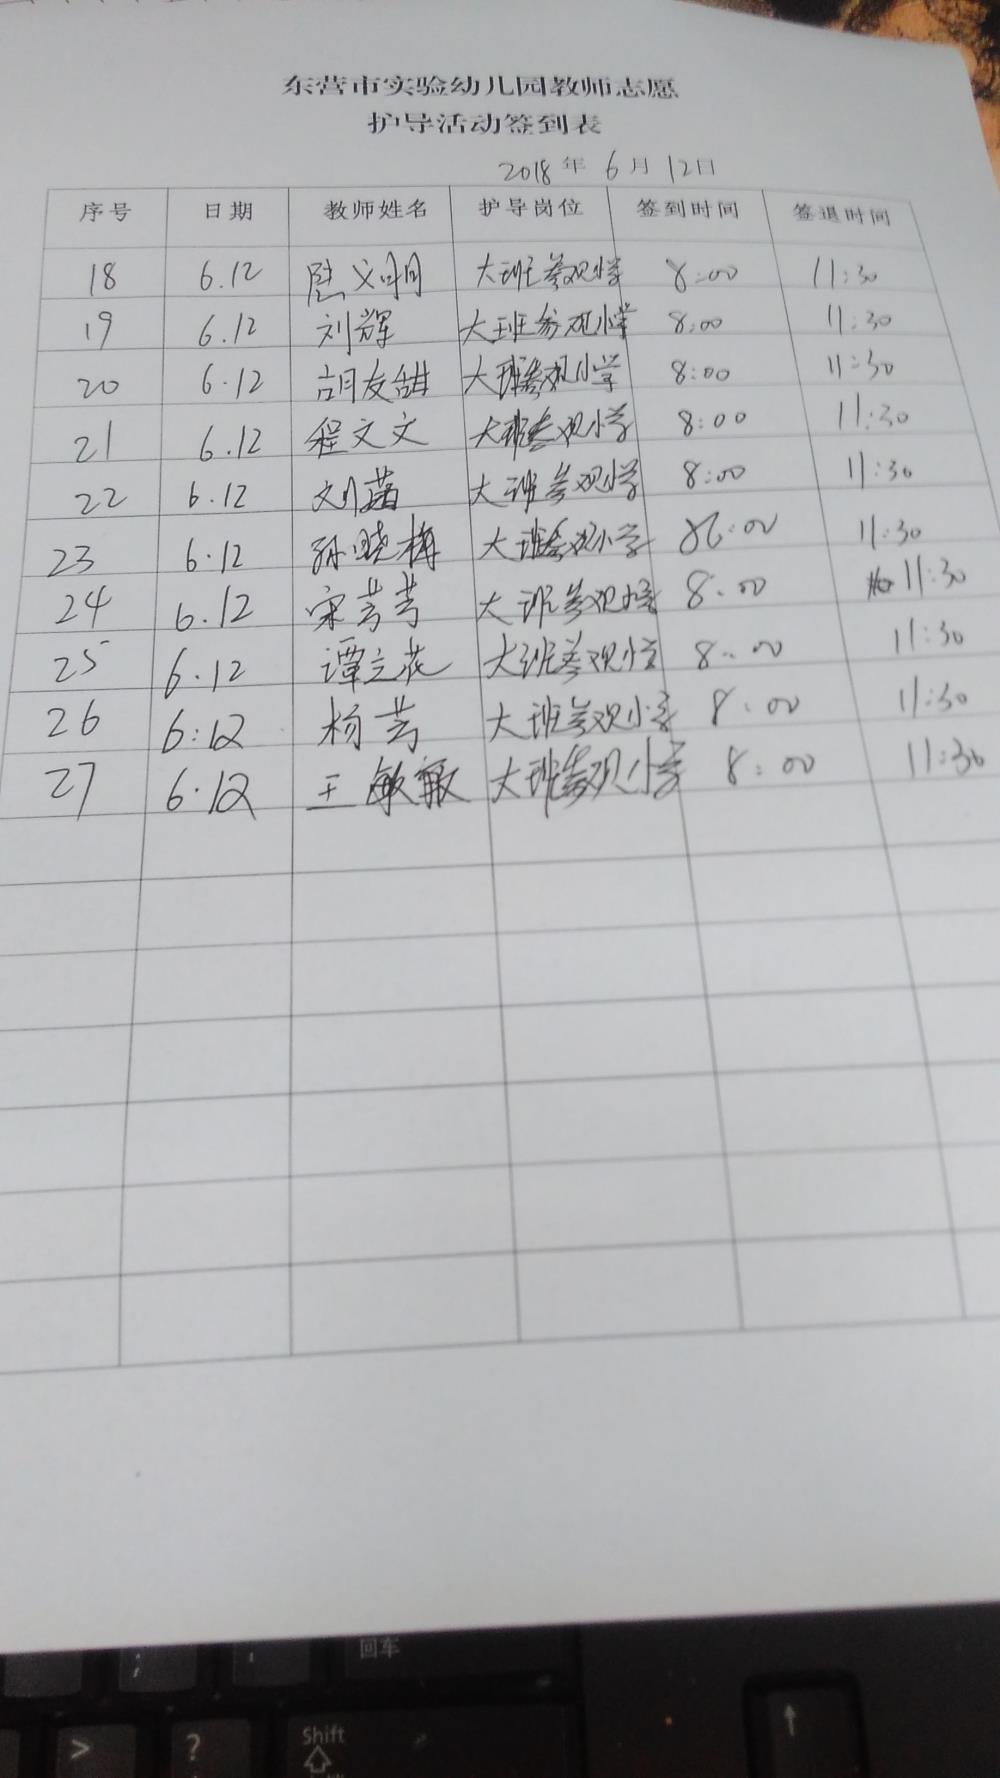 东营市实验幼儿园教师志愿
护导活动签到表
2018年 6月 12日
序号 日期 教师姓名 护导岗位 签到时间 签退时间
18 6.12 大班参观小学 8:00 11:30
19 6.12 刘辉 大班参观小学 8:00 11:30
20 6.12 胡友甜 大班参观小学 8:00 11:30
21 6.12 程文文 大班参观小学 8:00 11:30
22 6.12 刘茜 大班参观小学 8:00 11:30
23 6.12 孙晓梅 大班参观小学 8:00 11:30
24 6.12 宋芳芳 大班参观小学 8:00 11:30
25 6.12 谭立花 大班参观小学 8:00 11:30
26 6:12 杨芳 大班参观小学 8:00 11:30
27 6.12 王敏敏 大班参观小学 8:00 11:30
; 回车
> ? Shift